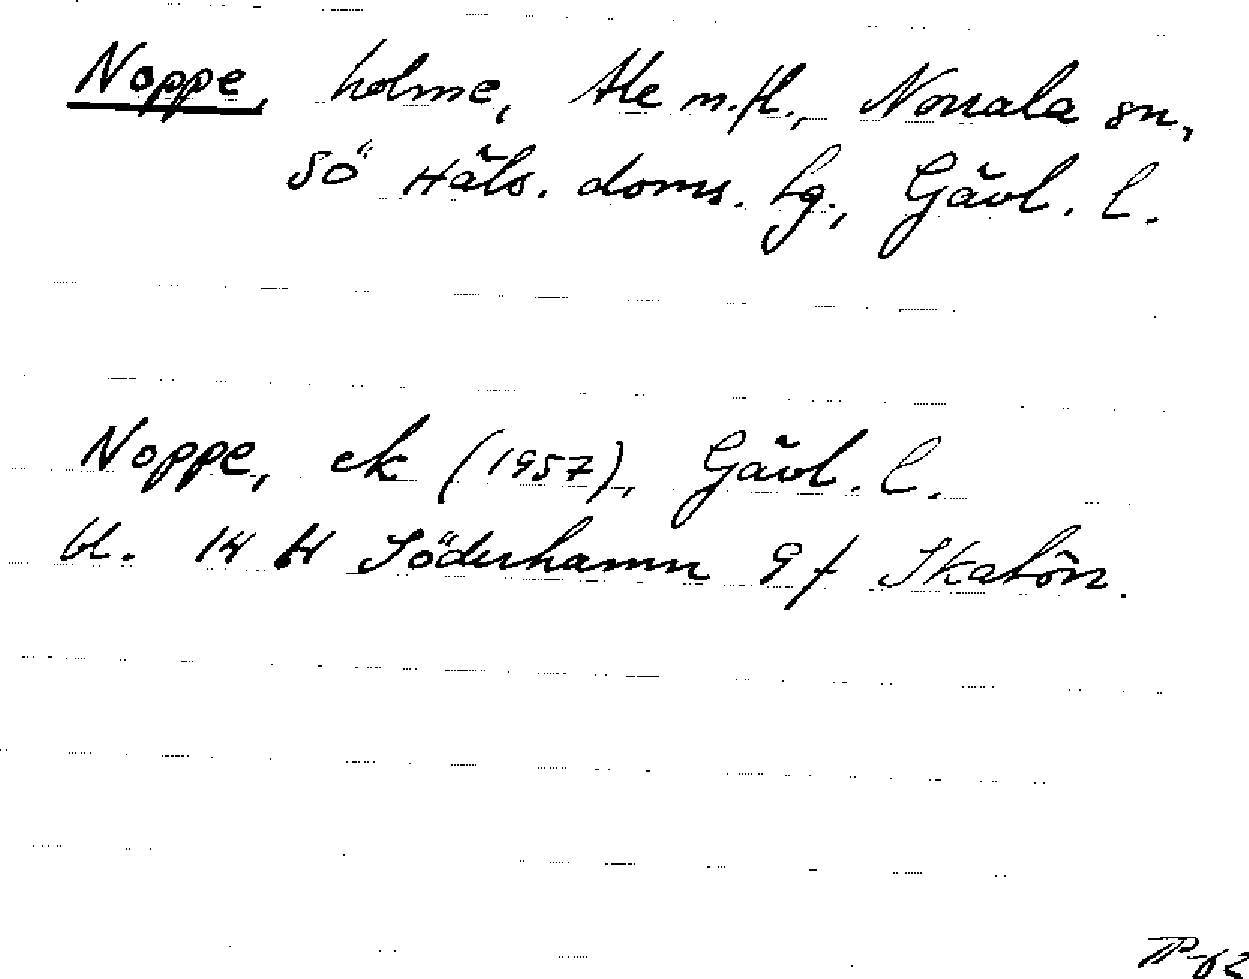 Noppe, holme, Ale m.fl., Norrala sn,
Sö Häls. doms. hg., Gävl. l.
Noppe, ek (1957), Gävl. l.
bl. 14 H Söderhamn 9 f Skatön.